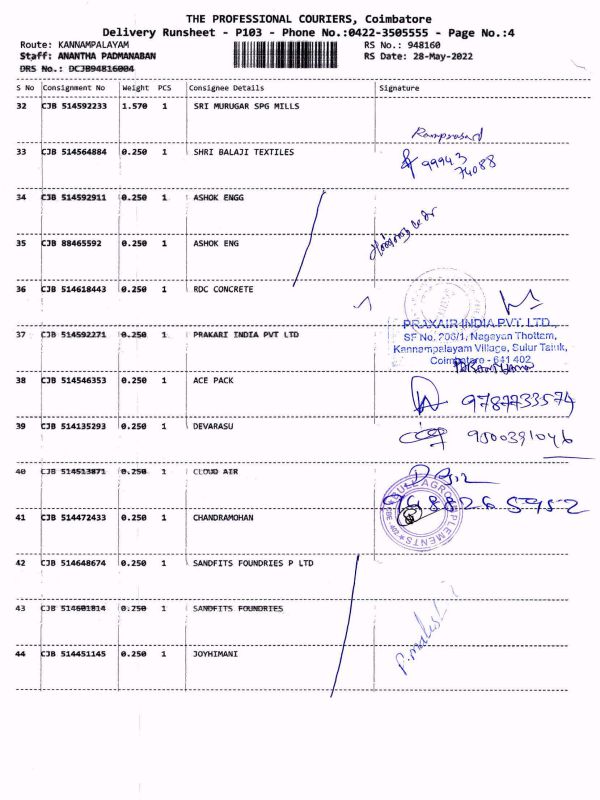 THE PROFESSIONAL COURIERS, Coimbatore
Delivery Runsheet - P103 - Phone No.:0422-3505555 - Page No.:4
Route: KANNAMPALAYAM RS No.: 948160
Staff: ANANTHA PADMANABAN RS Date: 28-May-2022
DRS No.: DCJB94816004
S No Consignment No Weight PCS Consignee Details Signature
32 CJB 514592233 1.570 1 SRI MURUGAR SPG MILLS
Ramprasad
33 CJB 514564884 0.250 1 SHRI BALAJI TEXTILES
99943
74088
34 CJB 514592911 0.250 1 ASHOK ENGG
35 CJB 88465592 0.250 1 ASHOK ENG
36 CJB 514618443 0.250 1 RDC CONCRETE
PRAXAIR INDIA PVT. LTD.,
37 CJB 514592271 0.250 1 PRAKARI INDIA PVT LTD
SF No. 206/1, Nagayan Thottam,
Kannampalayam Village, Sulur Taluk,
Coimbatore - 641 402
38 CJB 514546353 0.250 1 ACE PACK
9787733574
39 CJB 514135293 0.250 1 DEVARASU
9500391046
40 CJB 514513871 0.250 1 CLOUD AIR
41 CJB 514472433 0.250 1 CHANDRAMOHAN
42 CJB 514648674 0.250 1 SANDFITS FOUNDRIES P LTD
43 CJB 514601814 0.250 1 SANDFITS FOUNDRIES
P. malesh
44 CJB 514451145 0.250 1 JOYHIMANI